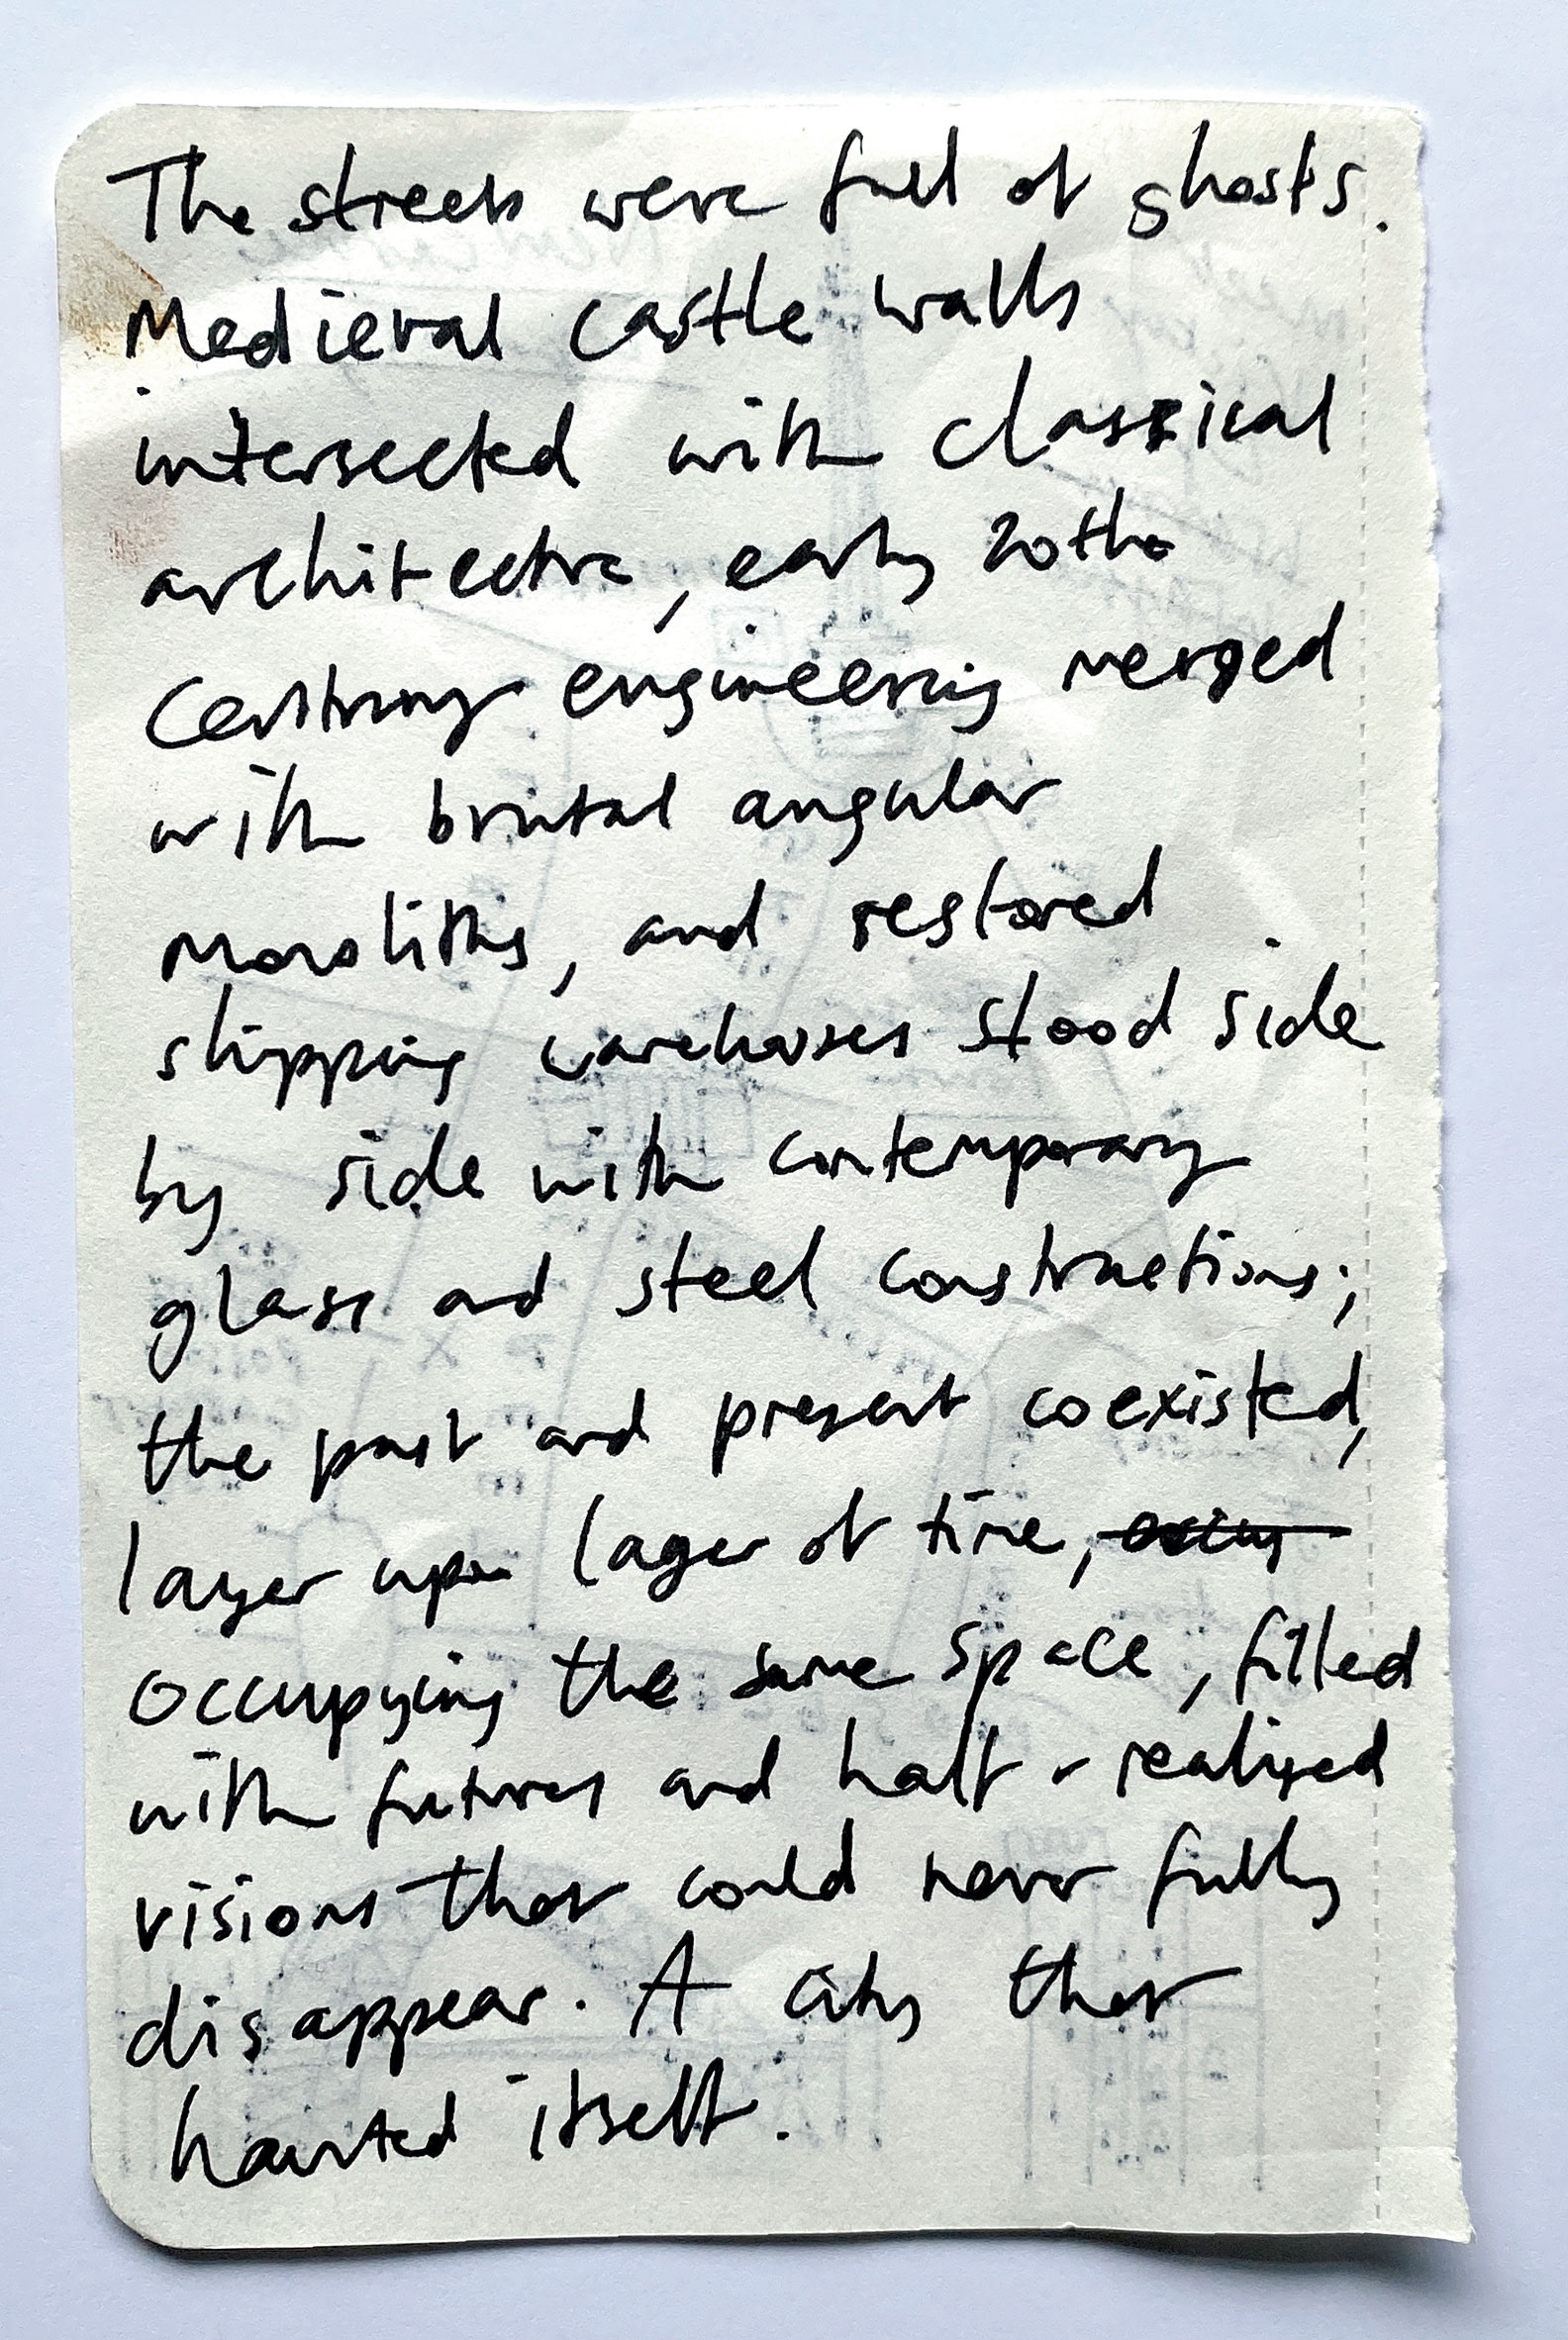 The streets were full of ghosts.
Medieval castle walls
intersected with classical
architectre, early 20th
century engineering merged
with brutal angular
monoliths, and restored
shipping warehouses stood side
by side with contemporary
glass and steel constructions;
the past and present coexisted,
layer upon layer of time,
occupying the same space, filled
with futures and half-realised
visions that could never fully
disappear. A city that
haunted itself.